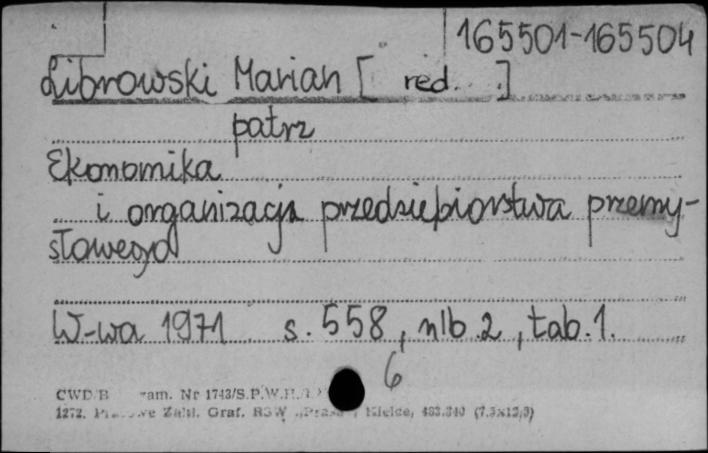 165501-165504
Librowski Marian [ red. . ]
patrz
Ekonomika
i organizacja przedsiębiorstwa przemy-
słowego
W-wa 1971 s. 558, nlb. 2, tab. 1.
6
CWD/B zam. Nr 1743/S.P.W.H.
1272. Zakł. Graf. RSW „Prasa”, Kielce, 483.340 (7,5x12,5)